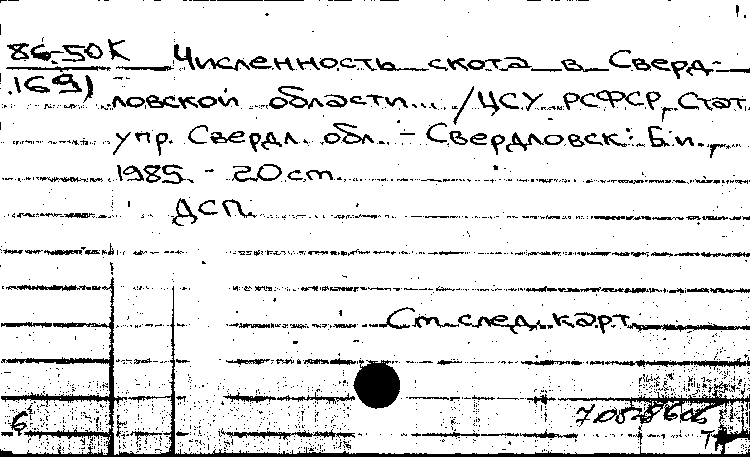 86-50К Численность скота в Сверд-
1691 ловской области... /ЦСУ РСФСР, Стат.
упр. Свердл. обл. - Свердловск: Б.и.,
1985. - 20 ст.
ДСП.
См. след. карт.
6